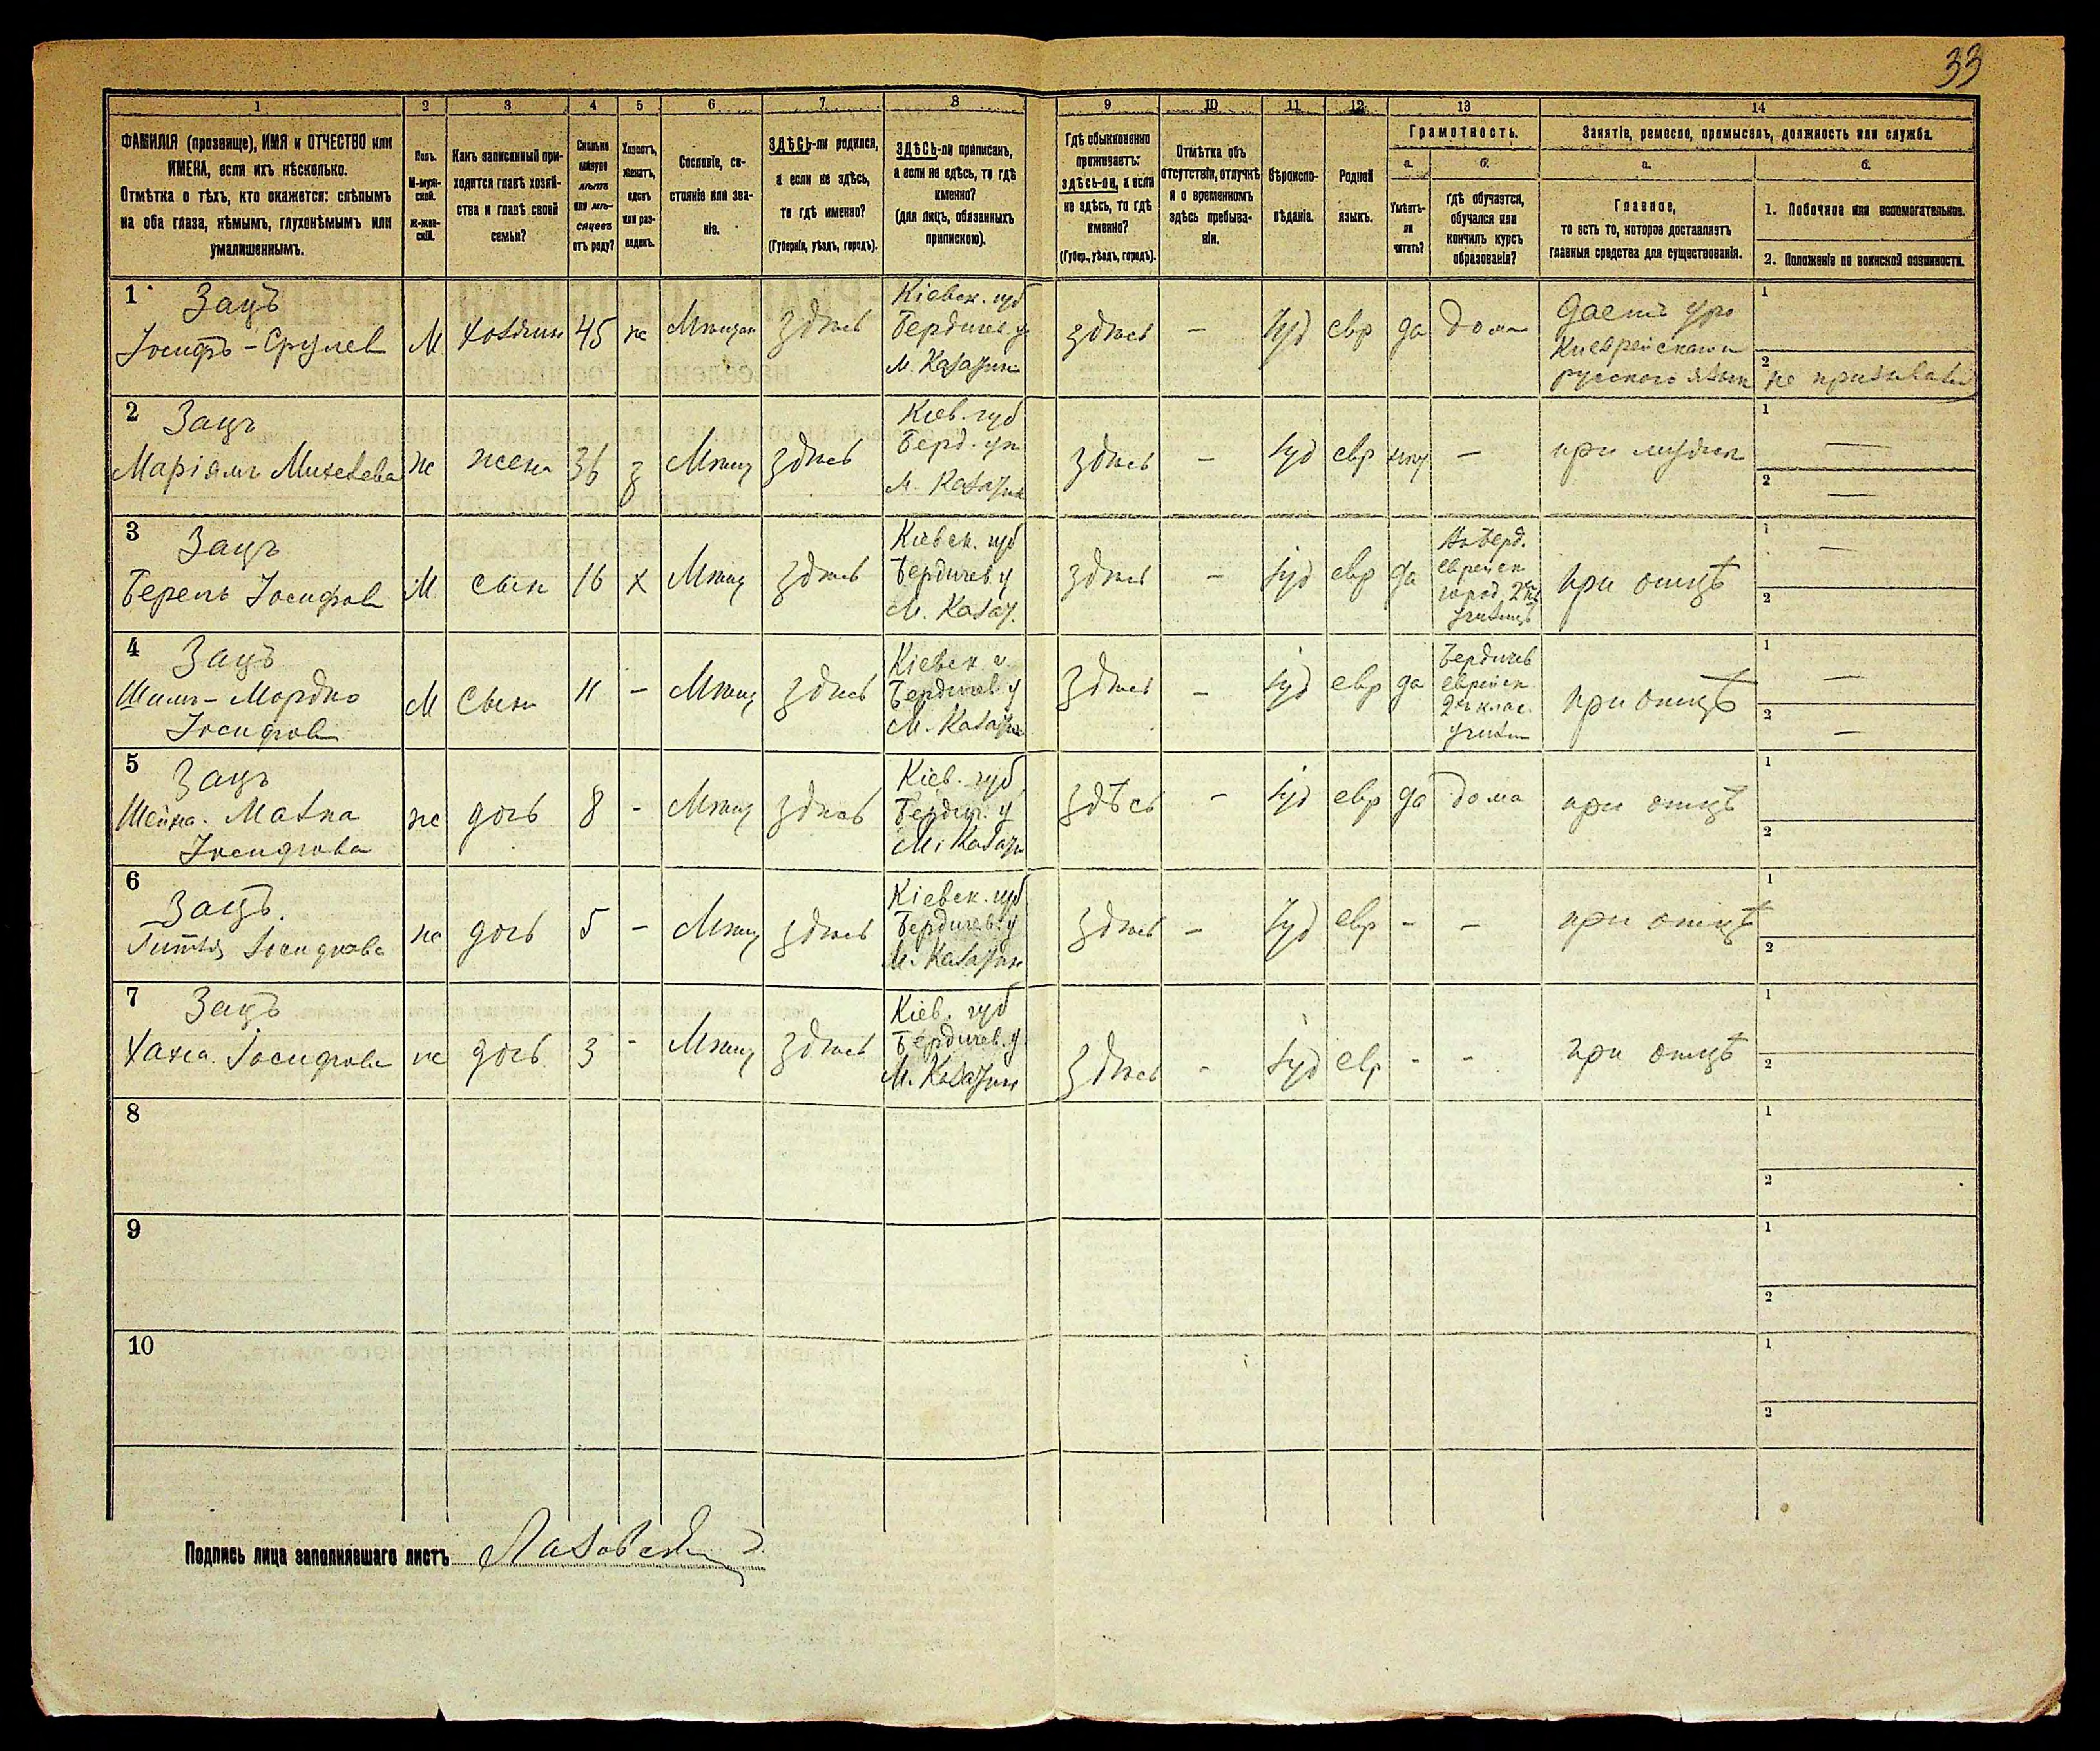 33
1 2 3 4 5 6 7 8 9 10 11 12 13 14
ФАМИЛІЯ (прозвище), ИМЯ и ОТЧЕСТВО или
ИМЕНА, если ихъ нѣсколько.
Отмѣтка о тѣхъ, кто окажется: слѣпымъ
на оба глаза, нѣмымъ, глухонѣмымъ или
умалишеннымъ.
Полъ.
М-муж-
ской.
Ж-жен-
скій.
Какъ записанный при-
ходится главѣ хозяй-
ства и главѣ своей
семьи?
Сколько
минуло
лѣтъ
или мѣ-
сяцевъ
отъ роду?
Холостъ,
женатъ,
вдовъ
или раз-
веденъ.
Сословіе, со-
стояніе или зва-
ніе.
ЗДѢСЬ-ли родился,
а если не здѣсь,
то гдѣ именно?
(Губернія, уѣздъ, городъ).
ЗДѢСЬ-ли приписанъ,
а если не здѣсь, то гдѣ
именно?
(для лицъ, обязанныхъ
припискою).
Гдѣ обыкновенно
проживаетъ:
здѣсь-ли, а если
не здѣсь, то гдѣ
именно?
(Губер., уѣздъ, городъ).
Отмѣтка объ
отсутствіи, отлучкѣ
и о временномъ
здѣсь пребыва-
ніи.
Вѣроиспо-
вѣданіе.
Родной
языкъ.
Грамотность.
а.
Умѣетъ-
ли
читать?
б.
гдѣ обучается,
обучался или
кончилъ курсъ
образованія?
Занятіе, ремесло, промыселъ, должность или служба.
а.
Главное,
то есть то, которое доставляетъ
главныя средства для существованія.
б.
1. Побочное или вспомогательное.
2. Положеніе по воинской повинности.
1 Зацъ
Іосифъ-Срулев М хозяин 45 ж Мѣщан здѣсь
Кіевск. губ
Бердичев. у
М. Казатин
здѣсь – Іуд евр да дома
Даетъ уро
ки еврейскаго и
русского язык
1
2 не призывался
2 Зацъ
Маріямъ Михелева ж жена 36 з Мѣщ здѣсь
Кіев. губ
Берд. уѣ
М. Казатин
здѣсь – Іуд евр – при мужѣ
1 —
2 —
3 Зацъ
Берель Іосифов М сын 16 х Мѣщ здѣсь
Кіевск. губ
Бердичев. у
М. Казат.
здѣсь – Іуд евр да
Въ Берд.
еврейск
город. 2кл
училищѣ
при отцѣ
1 —
2
4 Зацъ
Шим-Мордко
Іосифов
М Сын 11 – Мѣщ здѣсь
Кіевск. г.
Бердичев у
М. Казатин
здѣсь – Іуд евр да
Бердичев
еврейск
2хъ клас.
училищ
при отцѣ
1 —
2 —
5 Зацъ
Шейна. Малка
Іосифова
ж дочь 8 - Мѣщ здѣсь
Кіев. губ
Бердич. у
М. Казат
здѣсь – Іуд евр да дома при отцѣ
1
2
6 Зацъ.
Гитля Іосифова ж дочь 5 – Мѣщ здѣсь
Кіевск. губ
Бердичев. у
М. Казатин
здѣсь – Іуд евр – – при отцѣ
1
2
7 Зацъ
Хана Іосифова ж дочь 3 - Мѣщ здѣсь
Кіев. губ
Бердичев. у
М. Казатин
здѣсь - Іуд евр - - при отцѣ
1
2
8
1
2
9
1
2
10
1
2
Подпись лица заполнявшаго листъ Лазовскій